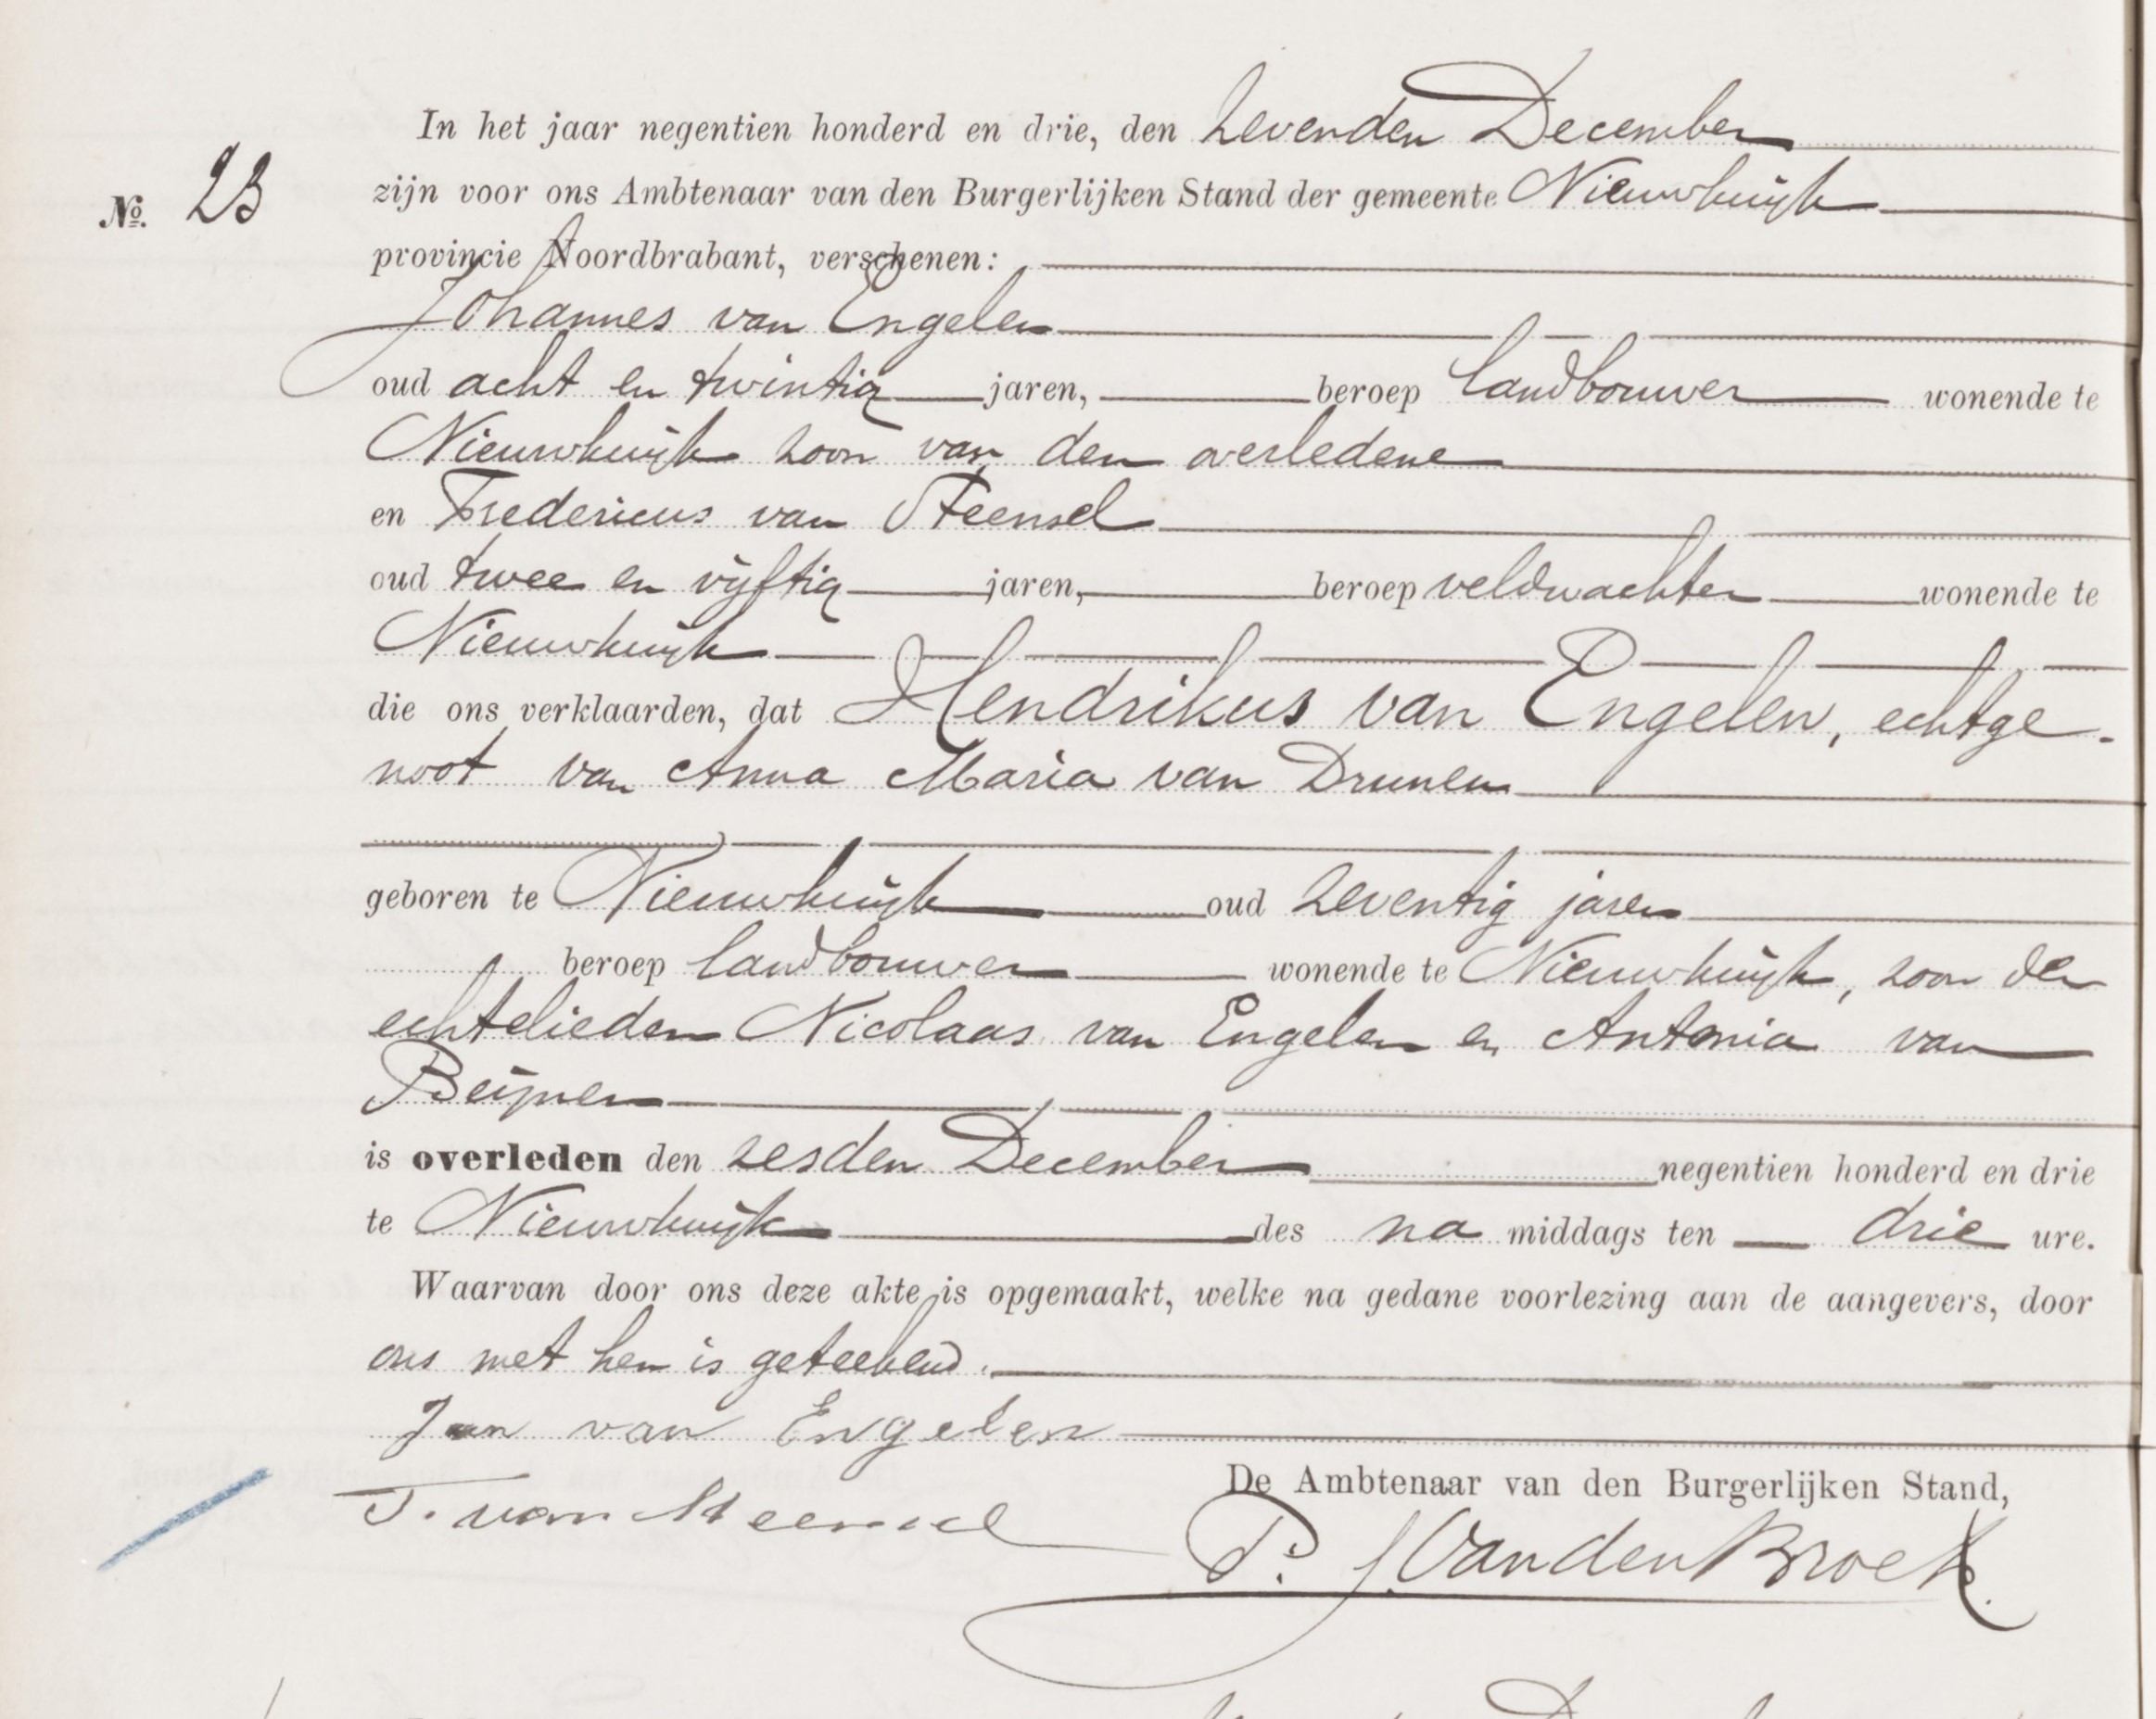 In het jaar negentien honderd en drie, den zevenden December
No. 23
zijn voor ons Ambtenaar van den Burgerlijken Stand der gemeente Nieuwkuijk
provincie Noordbrabant, verschenen:
Johannes van Engelen
oud acht en twintig jaren, beroep landbouwer wonende te
Nieuwkuijk zoon van den overledene
en Fredericus van Steensel
oud twee en vijftig jaren, beroep veldwachter wonende te
Nieuwkuijk
die ons verklaarden, dat Hendrikus van Engelen, echtge-
noot van Anna Maria van Drunen
geboren te Nieuwkuijk oud zeventig jaren
beroep landbouwer wonende te Nieuwkuijk, zoon der
echtelieden Nicolaas van Engelen en Antonia van
Beijnen
is overleden den zesden December negentien honderd en drie
te Nieuwkuijk des na middags ten drie ure.
Waarvan door ons deze akte is opgemaakt, welke na gedane voorlezing aan de aangevers, door
ons met hen is geteekend.
Jan van Engelen
De Ambtenaar van den Burgerlijken Stand,
F. van Steensel
P. J. Van den Broek.